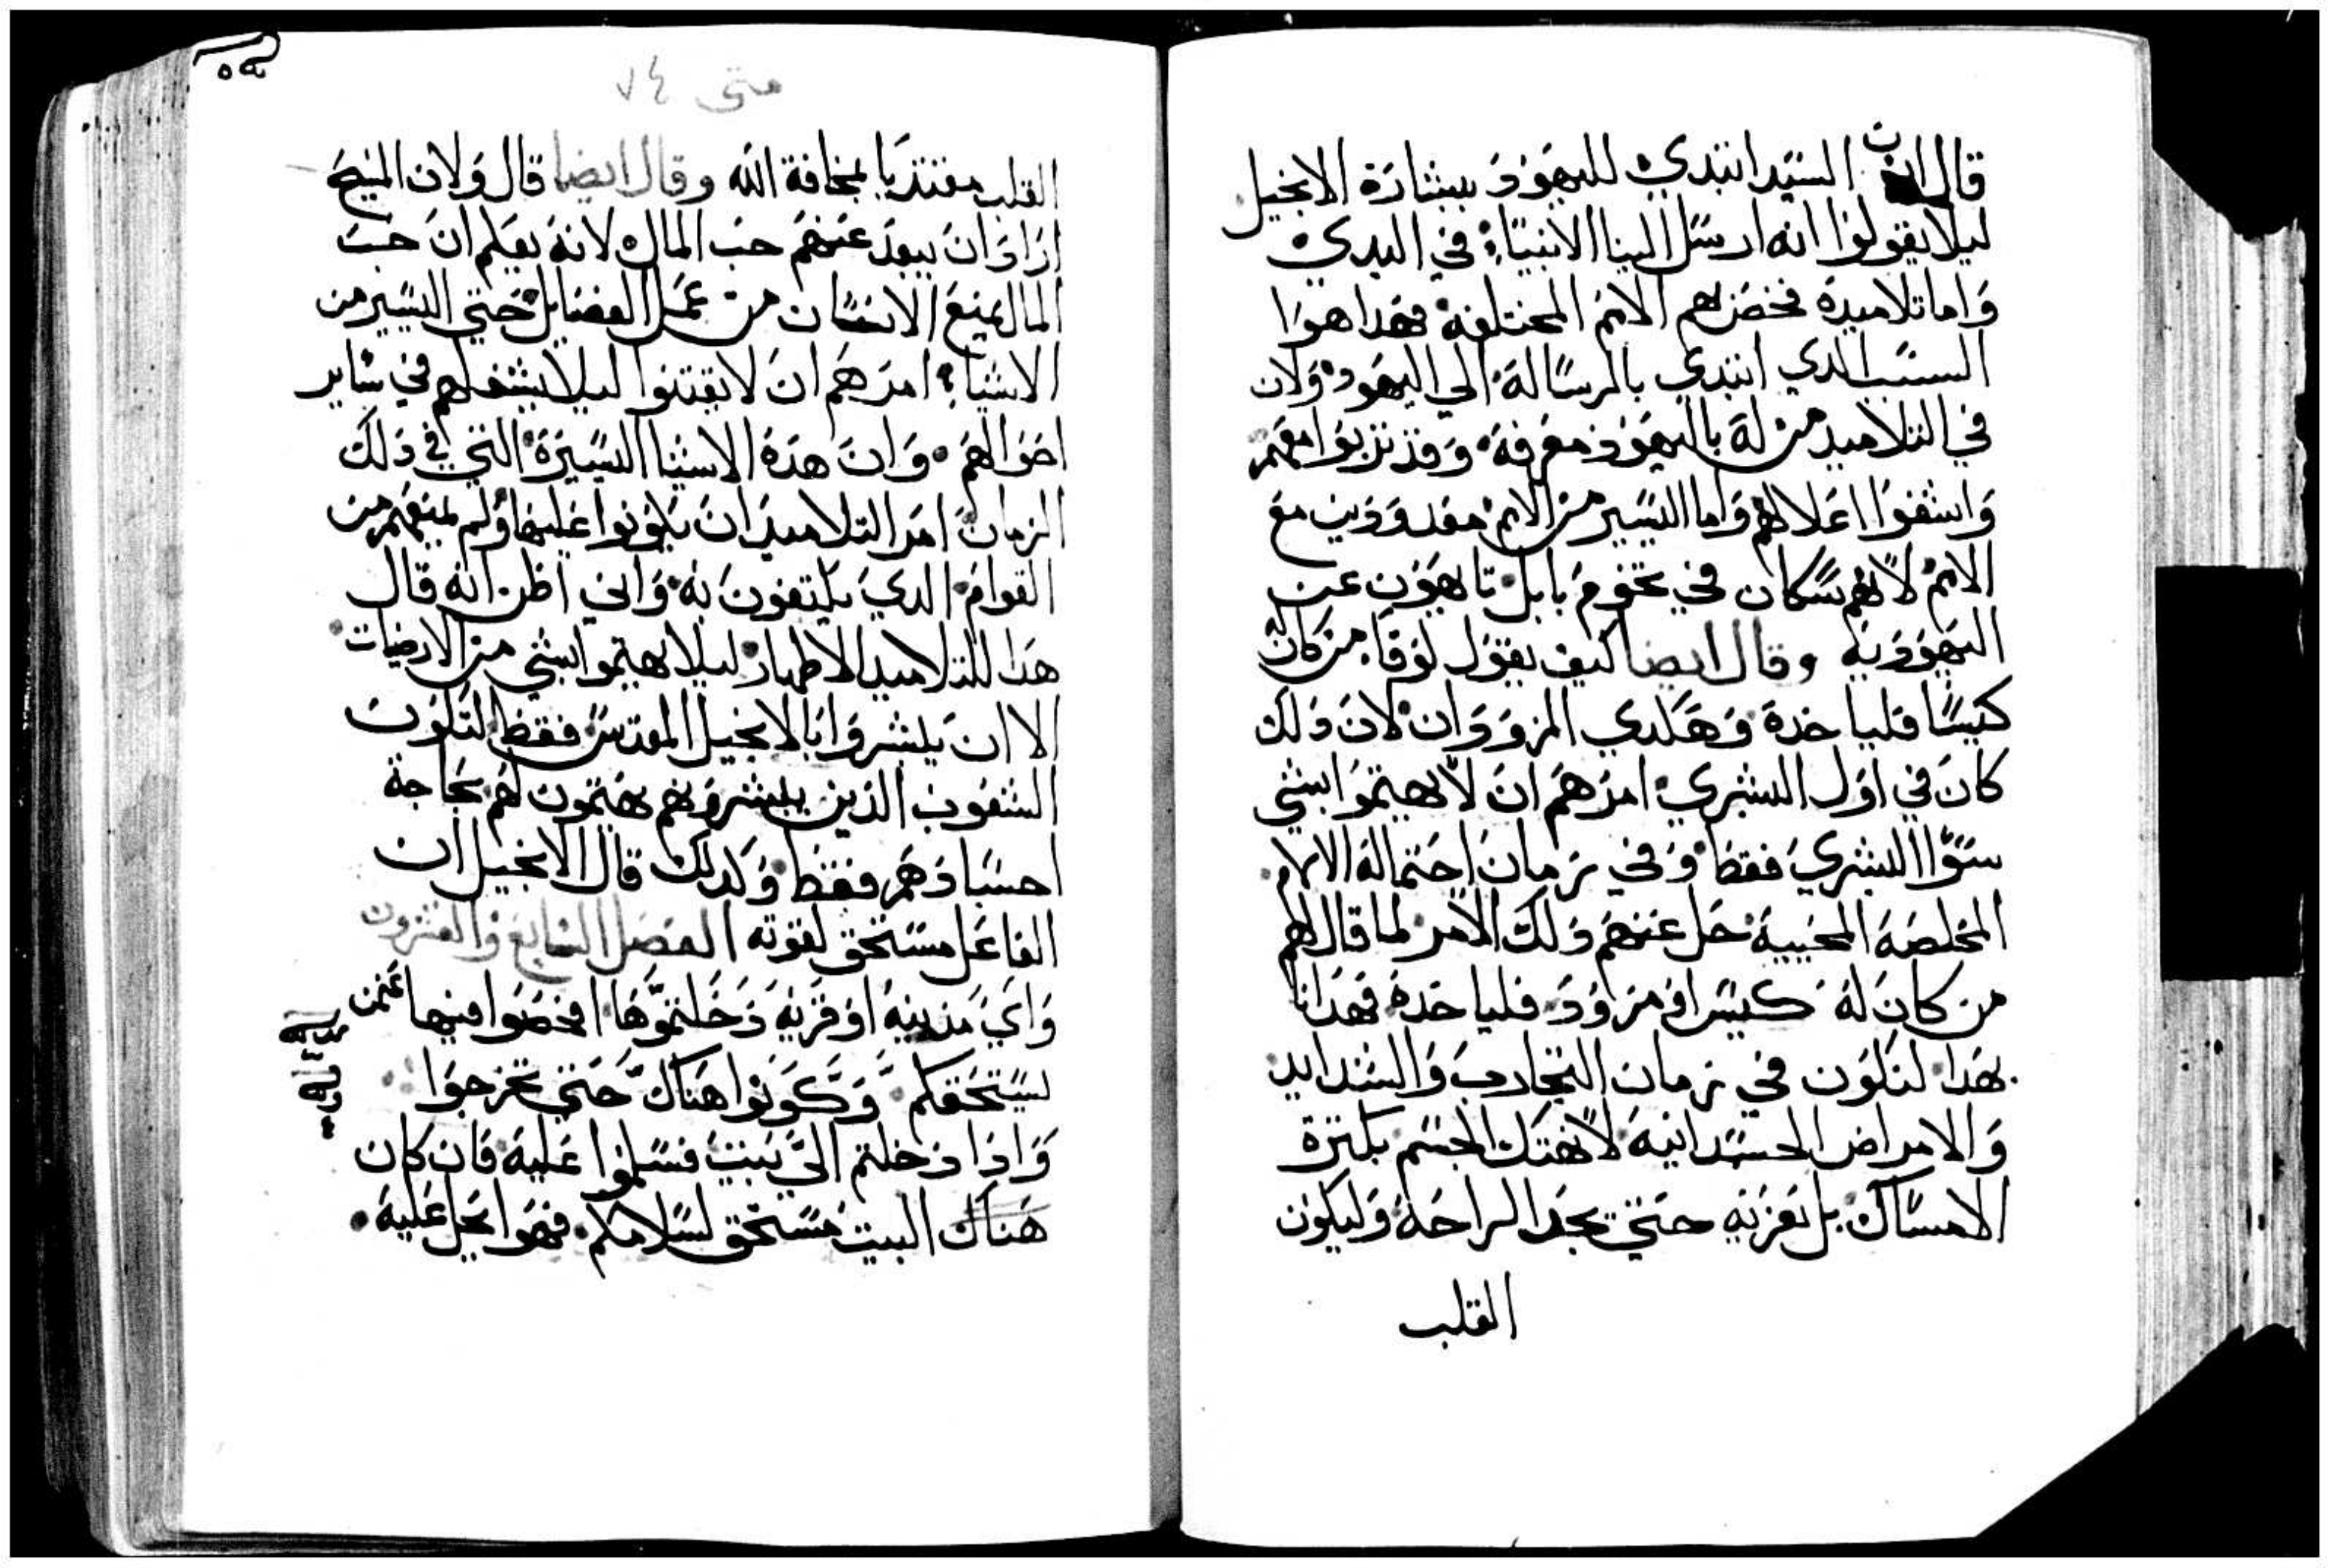 قال ان السيد ابتدي لليهود ببشارة الانجيل
ليلا يقولوا انه ارسل الينا الانبياء في البدي
واما تلاميده فخصهم الامم المختلفه فهدا هوا
السبب الدي ابتدي بالرسالة الي اليهود ولان
في التلاميد من له باليهود معرفه وقد تربوا معهم
واشفوا اعلالهم واما اليسير من الامم معدودين مع
الامم لانهم سكان في تخوم بابل تايهون عن
اليهوديه وقال ايضا كيف يقول لوقا من كان له
كيسا فلياخده وهكدي المزودان لان دلك
كان في اول البشري امرهم ان لا يهتموا بشي
سوا البشري فقط وفي زمان احتماله الالام
المخلصه المحييه حل عنهم دلك الامر لما قال لهم
من كان له كيس او مزود فلياخده فهدانا
بهدا لنكون في زمان التجارب والشدايد
والامراض الجسدانيه لا نهتك الجسم بكثرة
الامساك بل نعزيه حتي يجد الراحه وليكون
القلب
متى ٧٤
القلب مقتديا بمخافة الله وقال ايضا قال ولان المسيح
اراد ان يبعد عنهم حب المال لانه يعلم ان حب
المال يمنع الانسان من عمل الفضايل حتي اليسير من
الاشياء امرهم ان لا يقتنوا ليلا يشغلهم في ساير
احوالهم وان هده الاشيا اليسيرة التي في دلك
الزمان امر التلاميد ان يكونوا عليها ولم يمنعهم من
القوام الدي يكتفون به واني اظن انه قال
هدا للتلاميد الاطهار ليلا يهتموا بشي من الارضيات
الا ان يبشروا بالانجيل المقدس فقط لتكون
الشعوب الذين يبشرونهم يهتمون لهم بحاجة
احسادهم فقط وكدلك قال الانجيل ان
الفاعل مستحق لقوته الفصل السابع والعشرون
واي مدينه او قريه دخلتموها افحصوا فيها عمن
يستحقكم وكونوا هناك حتي تخرجوا
واذا دخلتم الي بيت فسلموا عليه فان كان
هناك البيت مستحق لسلامكم فهوا يحل عليه